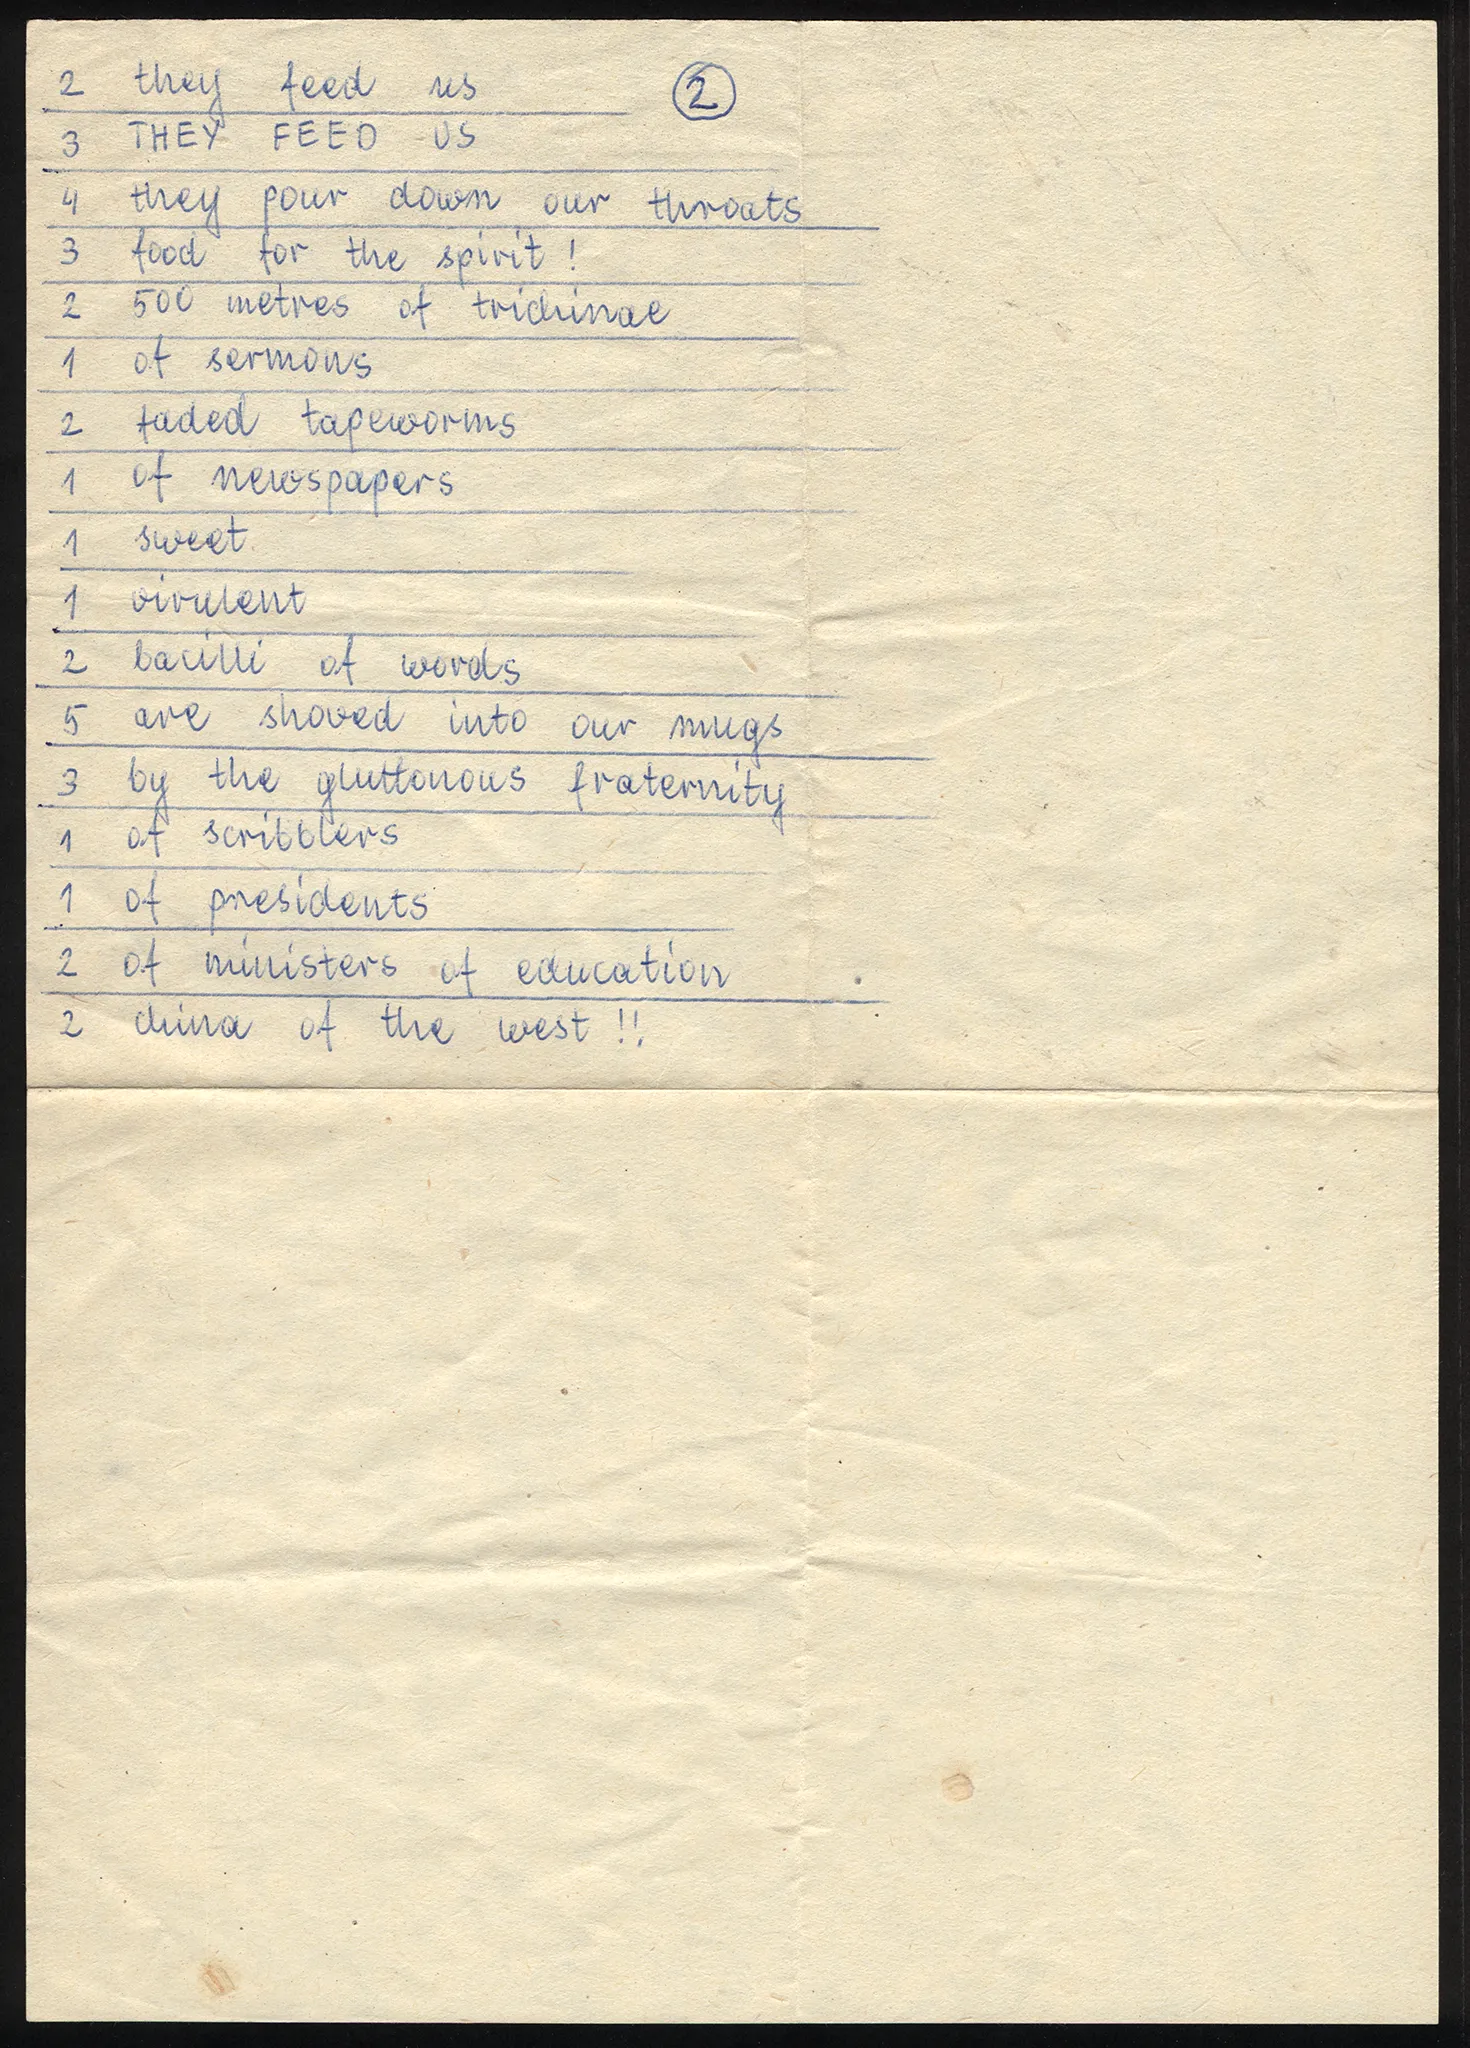 2 they feed us ②
3 THEY FEED US
4 they pour down our throats
3 food for the spirit!
2 500 metres of trichinae
1 of sermons
2 faded tapeworms
1 of newspapers
1 sweet
1 virulent
2 bacilli of words
5 are shoved into our mugs
3 by the gluttonous fraternity
1 of scribblers
1 of presidents
2 of ministers of education
2 china of the west!!